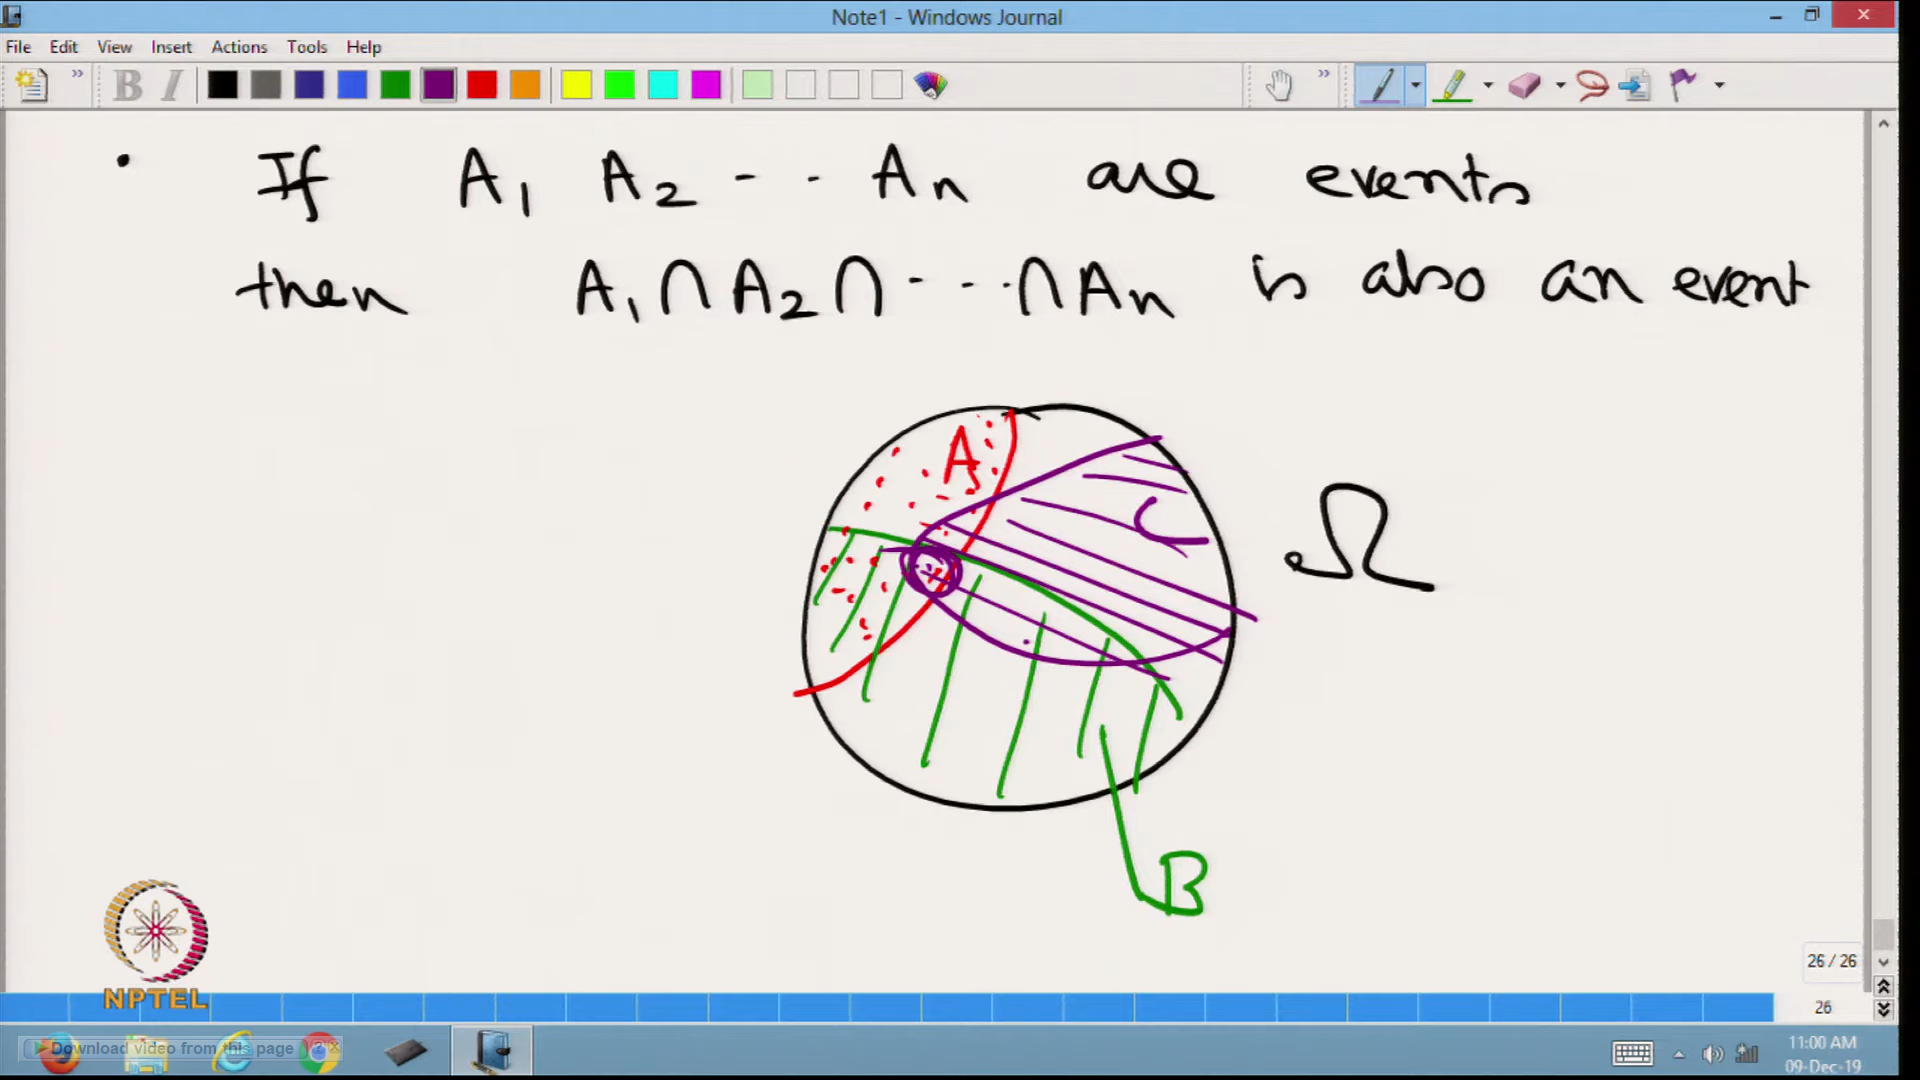 Note1 - Windows Journal
File Edit View Insert Actions Tools Help
B I
• If A₁ A₂ - ·· Aₙ are events
then A₁∩A₂∩ - -··∩Aₙ is also an event
A
C
Ω
B
26 / 26
NPTEL
26
Download video from this page ? ×
11:00 AM
09-Dec-19